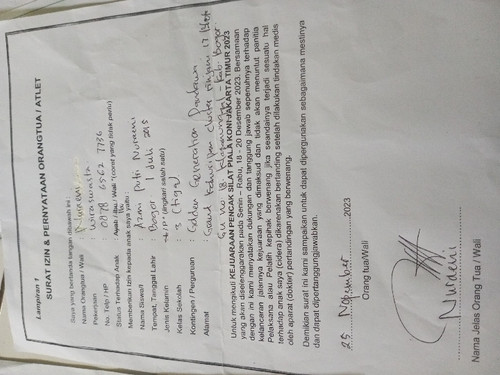 Lampiran 1
SURAT IZIN & PERNYATAAN ORANGTUA / ATLET
Saya yang bertanda tangan dibawah ini :
Nama Orangtua / Wali : Nurneni
Pekerjaan : Wiraswasta
No. Telp / HP : 0878 6562 7736
Status Terhadap Anak : Ayah / Ibu / Wali (coret yang tidak perlu)
Memberikan Izin kepada anak saya yaitu :
Nama (Siswa/i) : Putri Nurneni
Tempat, Tanggal Lahir : Bogor, 1 Juli 2015
Jenis Kelamin : L / P (lingkari salah satu)
Kelas Sekolah : 3 (tiga)
Kontingen / Perguruan : Golden Generation
Alamat : Grand Cluster 17 Blok
No 18
Untuk mengikuti KEJUARAAN PENCAK SILAT PIALA KONI JAKARTA TIMUR 2023
yang akan diselenggarakan pada Senin – Rabu, 18 - 20 Desember 2023. Bersamaan
dengan ini kami menyatakan dukungan dan tanggung jawab sepenuhnya terhadap
kelancaran jalannya kejuaraan yang dimaksud dan tidak akan menuntut panitia
Pelaksana atau Pelatih kepihak berwenang jika seandainya terjadi sesuatu hal
terhadap anak saya (cidera) dikarenakan bertanding setelah dilakukan tindakan medis
oleh aparat (dokter) pertandingan yang berwenang.
Demikian surat ini kami sampaikan untuk dapat dipergunakan sebagaimana mestinya
dan dapat dipertanggungjawabkan.
25 November 2023
Orang tua/Wali
Nurneni
Nama Jelas Orang Tua / Wali